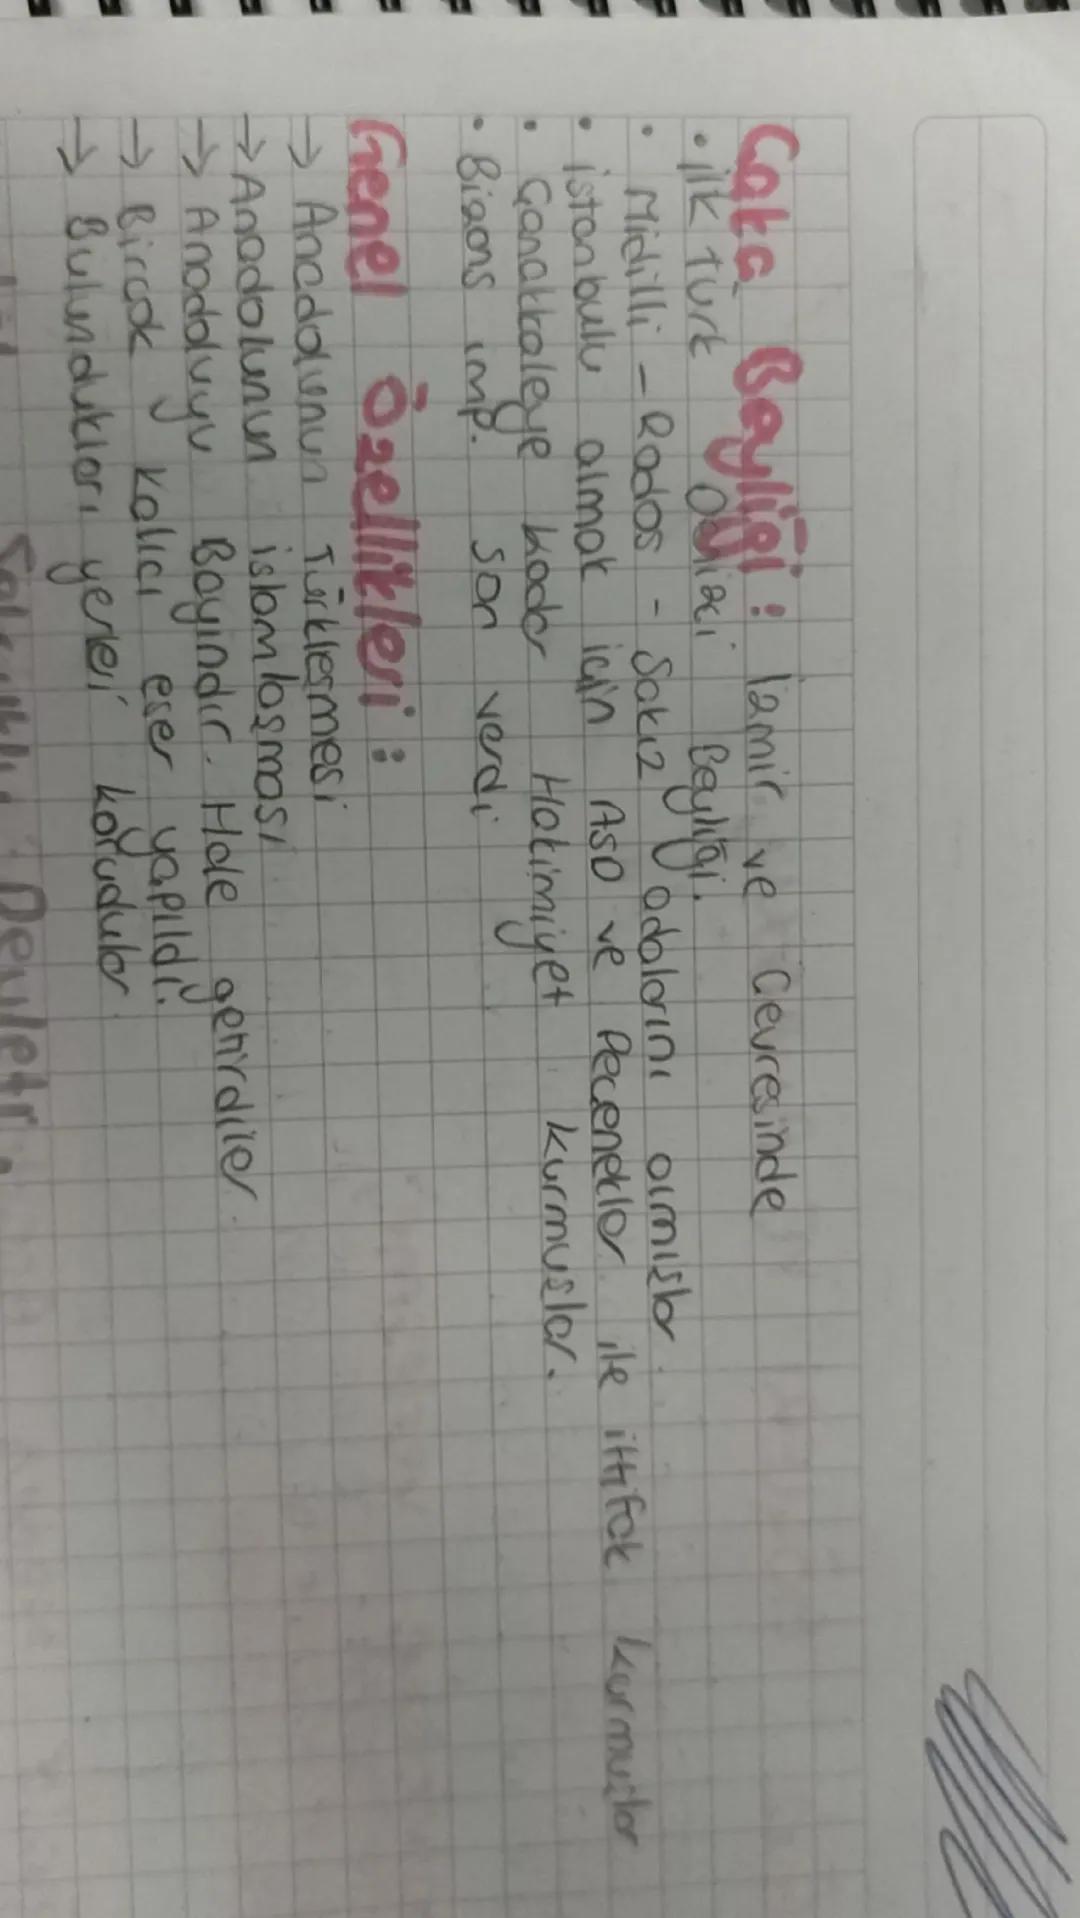 Çaka Beyliği: İzmir ve Çevresinde
• ilk türk Denizci Beyliği.
• Midilli - Rodos - Sakız adalarını almışlar.
• istanbulu almak için ASD ve Peçenekler ile ittifak kurmuşlar
• Çanakkaleye kadar Hakimiyet kurmuşlar.
• Bizans imp. son verdi
Genel Özellikleri:
→ Anadolunun Türkleşmesi
→ Anadolunun islamlaşması
→ Anadoluyu Bayındır Hale getirdiler.
→ Birçok kalıcı eser yapıldı.
→ Bulundukları yerleri korudular.